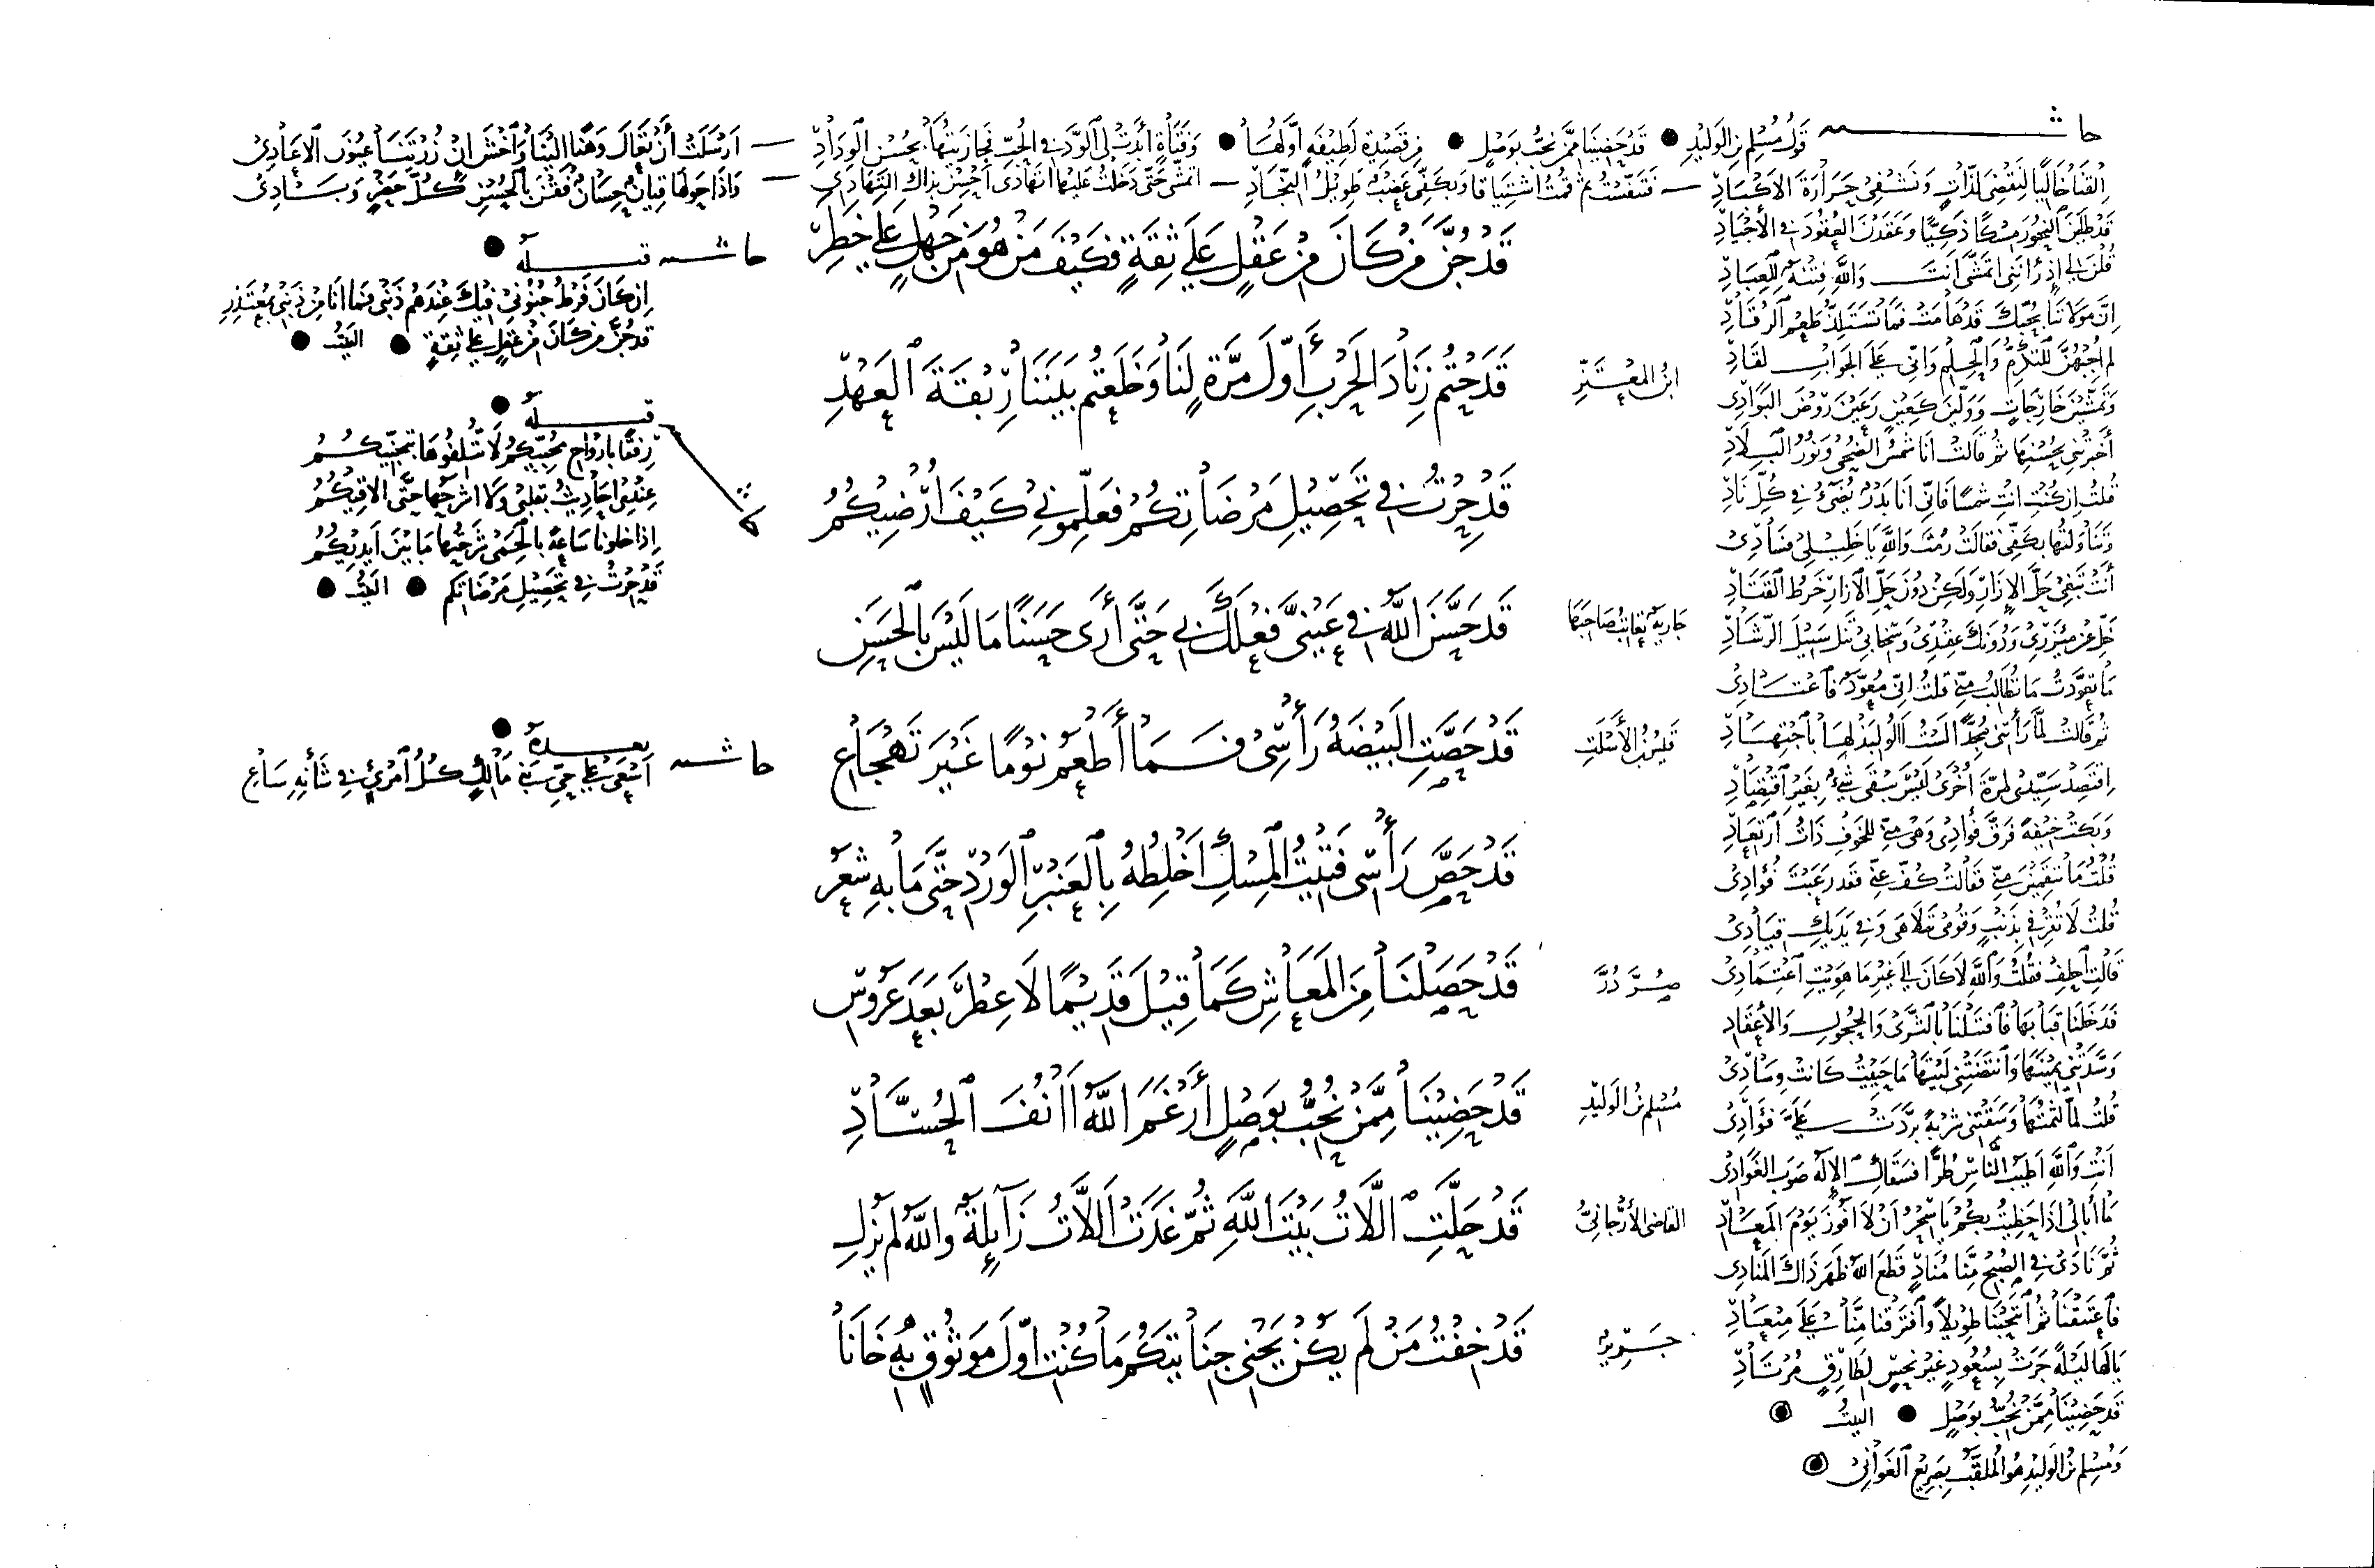 حاشية قول مسلم بن الوليد ● قد حضينا ممن نحب بوصل ● من قصيدة لطيفة أولها ● وفتاة أبدت لي الود في الحب فجازيتها بحسن الوداد — أرسلت أن تعال وهنا إلينا وأخش إن زرتنا عيون الأعادي
القنا خاليا لنقضي لذات ونشفي حرارة الأكباد — فتنفست ثم قمت اشتياقا وبكفي عضب طويل النجاد — أتمشى حتى دخلت عليها أتهادى أحسن بذاك التهادي — وإذا حولها قيان حسان فقن بالحسن كل حضر وبادي
قد طلين النحور مسكا ذكيا وعقدن العقود في الأجياد
قلن لي إذ رأينني أتمشى أنت والله فتنة للعباد
إن مولاتنا بحبك قد هامت فما تستلذ طعم الرقاد
لم أجبهن للتذمم والحلم وإني على الجواب لقاد
وتمشين خارجات وولين كعين رعين روض البوادي
أخبرتني بحسنها ثم قالت أنا شمس الضحى ونور البلاد
قلت إن كنت أنت شمسا فإني أنا بدر يضيء في كل ناد
وتناولتها بكفي فقالت رمت والله يا خليلي فسادي
أنت تبغي حل الإزار ولكن دون حل الإزار خرط القتاد
خل عن مئزري ودونك عقدي وسخابي تنل سبيل الرشاد
ما تعودت ما تطالب مني قلت إني معود فاعتادي
ثم قالت لما رأتني مجدا ألست الوليد لها باجتهاد
اقتصد سيدي لمرة أخرى ليس يبقى شيء بغير اقتصاد
وبكت خيفة فرق فؤادي وهي مني للخوف ذات ارتعاد
قلت ما تنقمين مني فقالت كف عني فقد رعبت فؤادي
قلت لا تقرفي بذنب وقومي نتلاهى وفي يديك قيادي
قالت احلف فقلت والله لا كان إلى غير ما هويت اعتمادي
فدخلنا قبابها فاقتتلنا بالشوى والحجول والأعقاد
وسدتني يمينها وانتضتني ليتها ما حييت كانت وسادي
قلت لما لثمتها وسقتني شربة بردت علي فؤادي
أنت والله أطيب الناس طرا فسقاك الإله صوب الغوادي
ما أبالي إذا حظيت بكم يا سحر أن لا أفوز يوم المعاد
ثم نادى في الصبح منا مناد قطع الله ظهر ذاك المنادي
فاعتنقنا ثم انتحبنا طويلا وافترقنا منا على ميعاد
يا لها ليلة جرت بسعود غير نحس لطارق مرتاد
قد حضينا ممن نحب بوصل ● البيت
ومسلم بن الوليد هو الملقب بصريع الغواني
قد جن من كان من عقل على ثقة فكيف من هو من جهل على خطر
ابن المعتز
قدحتم زناد الحرب أول مرة لنا وخلعتم بيننا ربقة العهد
قد حرت في تحصيل مرضاتكم فعلموني كيف أرضيكم
جارية تعاتب صاحبها
قد حسن الله في عيني فعلك بي حتى أرى حسنا ما ليس بالحسن
قيس بن الأسلت
قد حصت البيضة رأسي فما أطعم نوما غير تهجاع
قد حص رأسي فتيت المسك أخلطه بالعنبر الورد حتى ما به شعر
صر در
قد حصلنا من المعاش كما قيل قديما لا عطر بعد عروس
مسلم بن الوليد
قد حضينا ممن نحب بوصل أرغم الله أنف الحساد
القاضي الأرجاني
قد حلت اللات بيت الله ثم غدت اللات زائلة والله لم يزل
جرير
قد خفت من لم يكن يجني جنايتكم ما كنت أول موثوق به خانا
حاشية قبله ●
إن كان فرط جنوني فيك عندهم ذنبي فما أنا من ذنبي بمعتذر
قد جن من كان من عقل على ثقة ● البيت ●
قبله ●
رفقا بأرواح محبيكم لا تتلفوها بتجنيكم
عندي أحاديث بقلبي ولا أشرحها حتى ألاقيكم
إذا خلونا ساعة بالحمى شرحتها ما بين أيديكم
قد حرت في تحصيل مرضاتكم ● البيت ●
حاشية بعده ●
أسعى على حي بني مالك كل امرئ في شأنه ساع